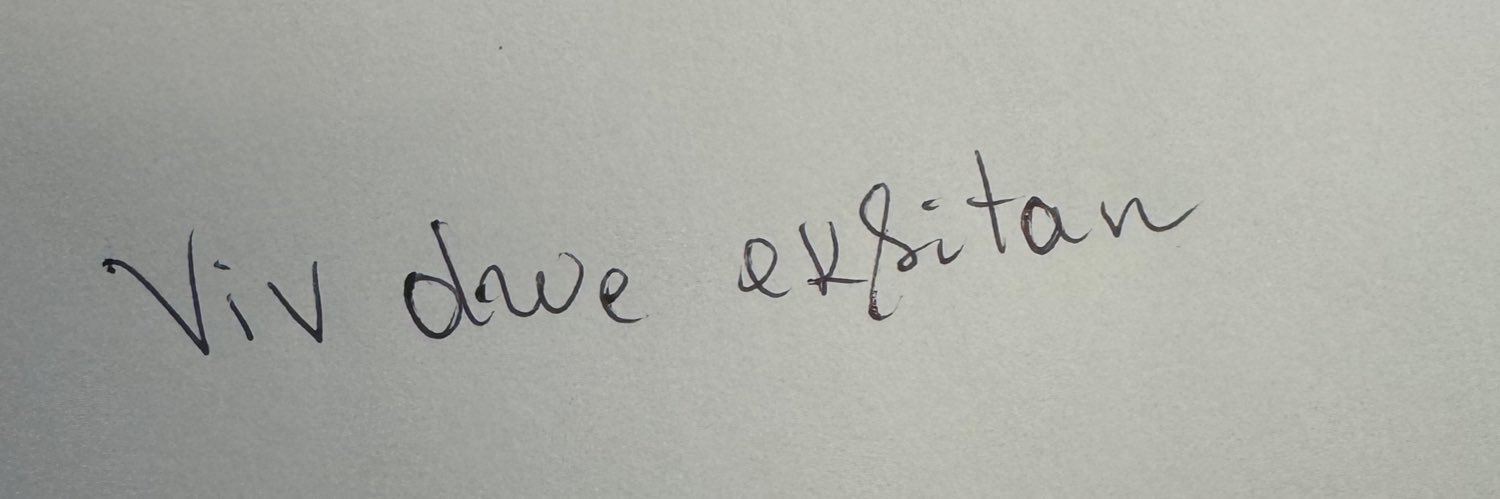 Viv dwe eksitan